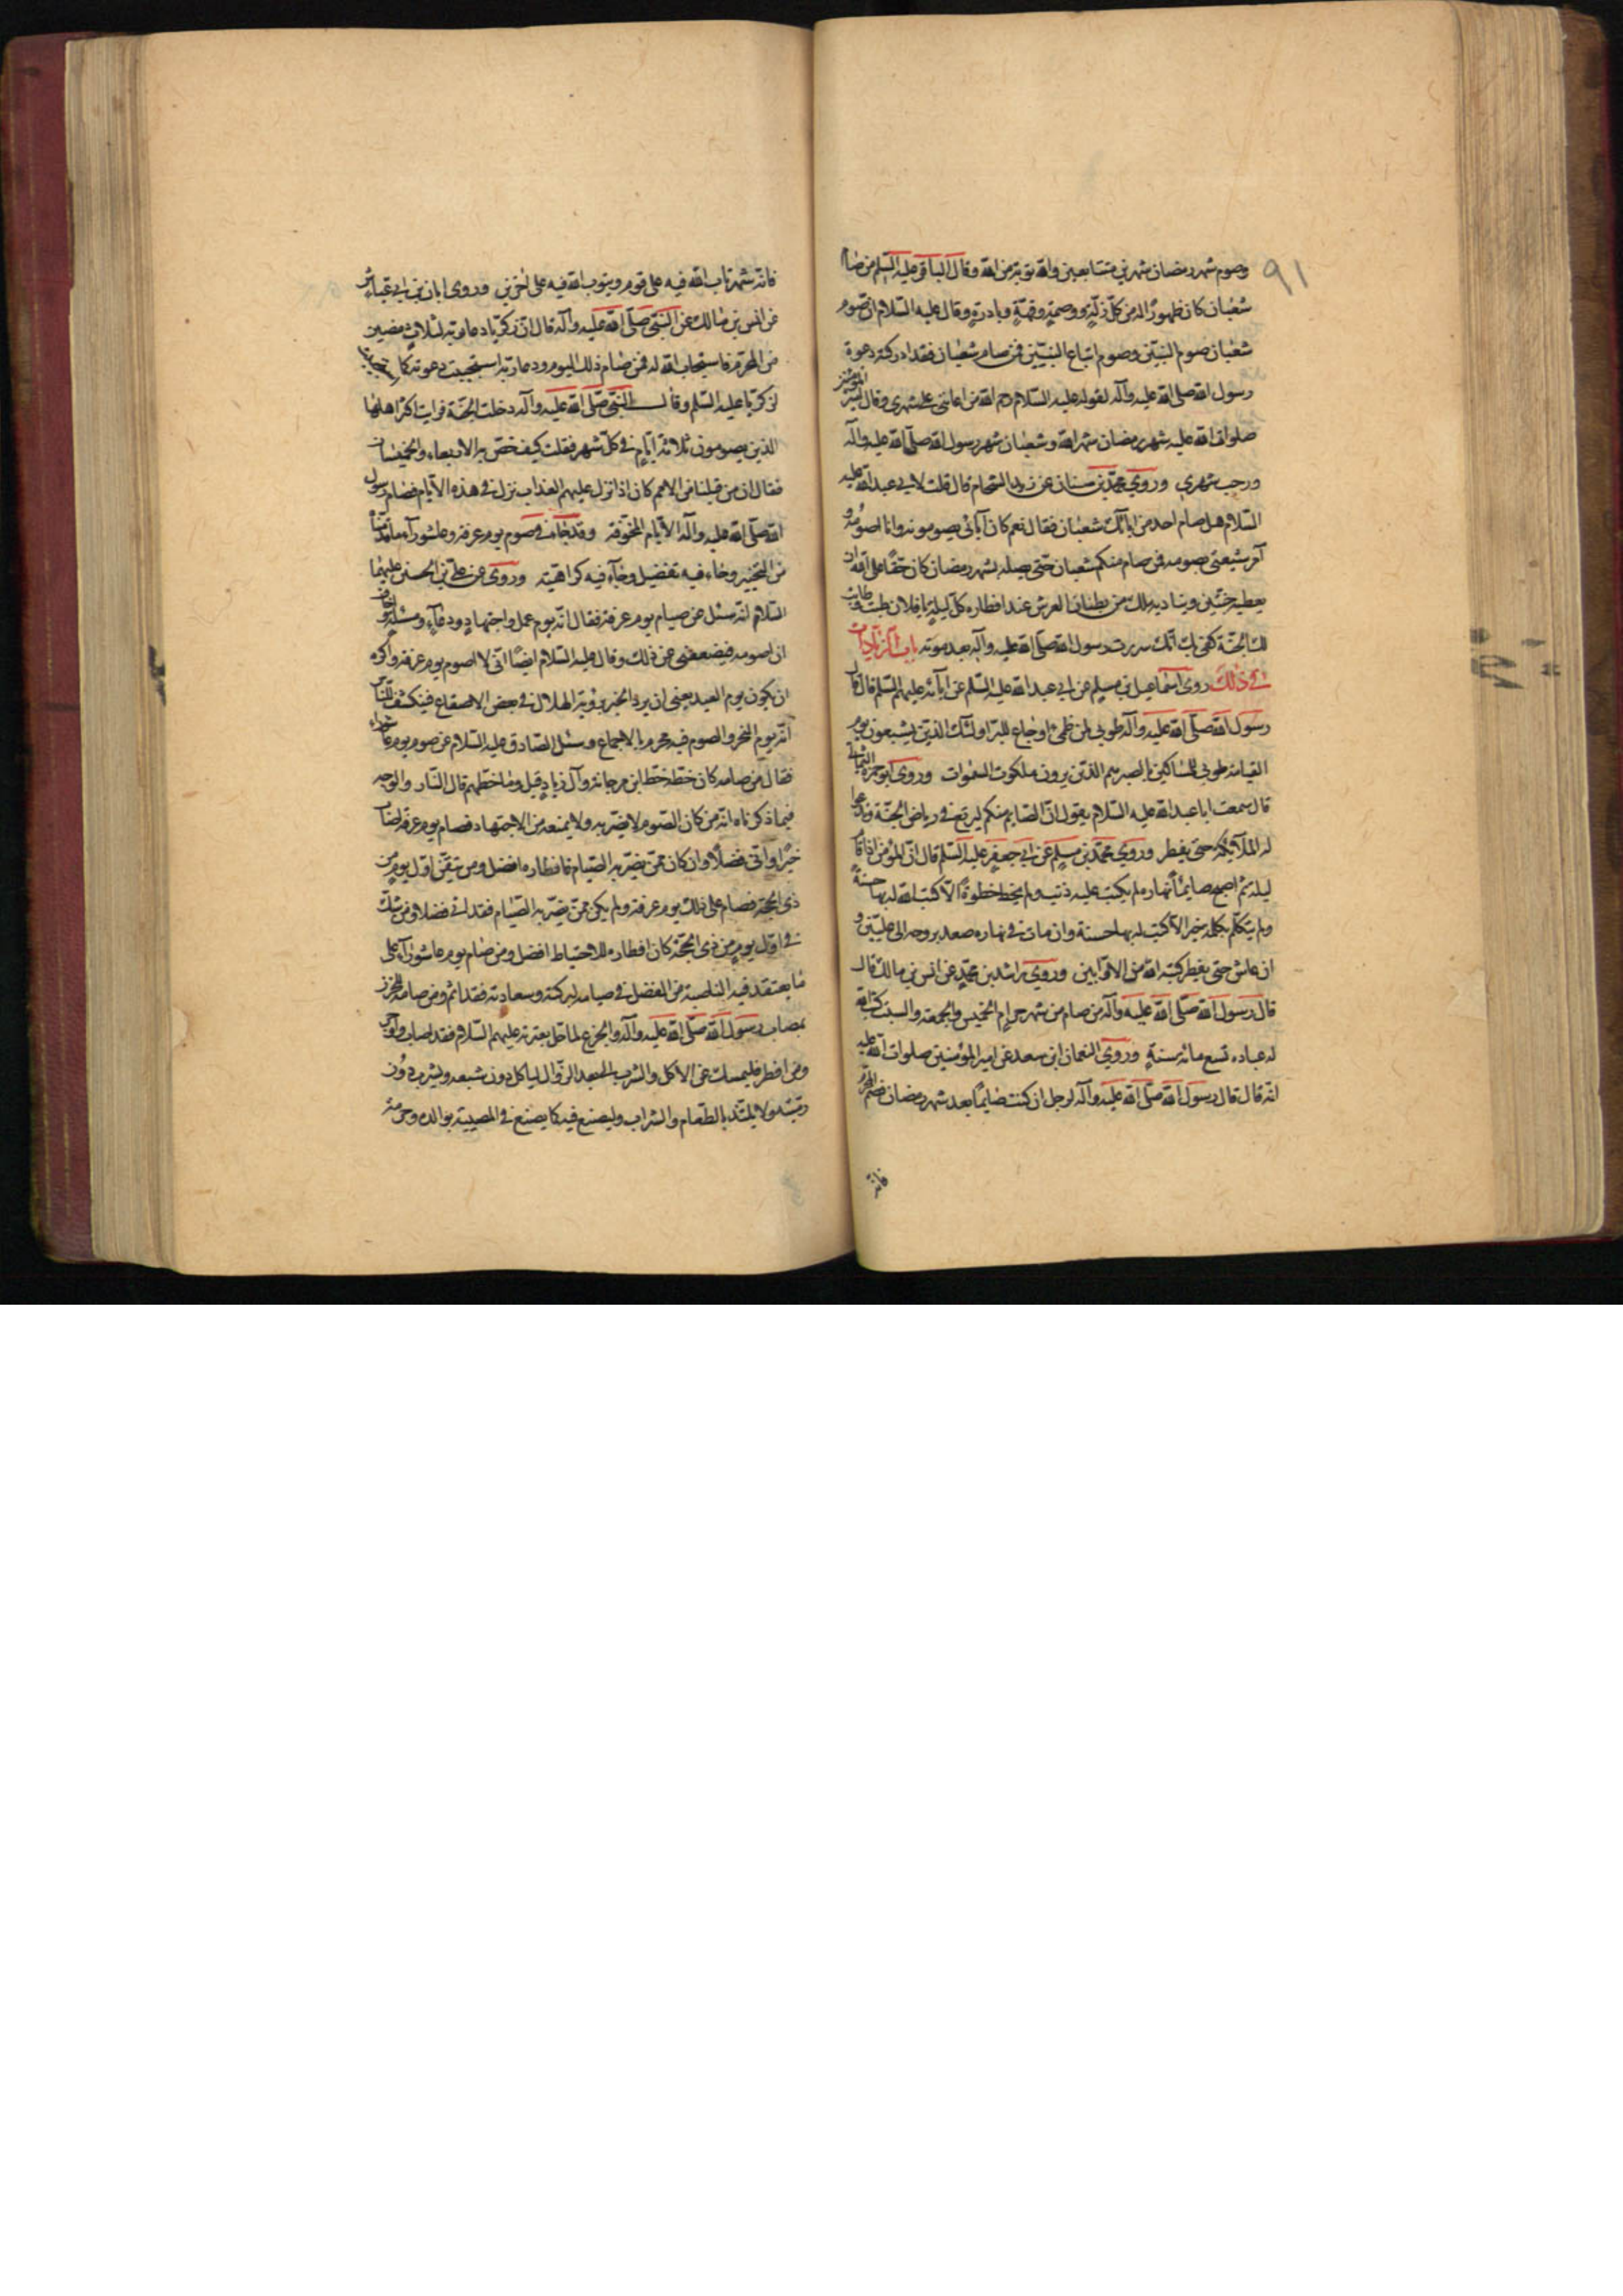 ٩١
وصوم شهر رمضان شهرين متتابعين والله توبة من الله وقال الباقر عليه السلم من صام
شعبان كان طهورًا له من كل زلّة ووصمة وبادرة وقال عليه السلام ان صوم
شعبان صوم النبيين وصوم اتباع النبيين فمن صام شعبان فقد ادركته دعوة
رسول الله صلى الله عليه وآله لقوله عليه السلام رحم الله من اعانني على شهري وقال امير المؤمنين
صلوات الله عليه شهر رمضان شهر الله وشعبان شهر رسول الله صلى الله عليه وآله
ورجب شهري وروى محمد بن سنان عن زيد الشحام قال قلت لابي عبد الله عليه
السلام هل صام احد من ابائك شعبان فقال نعم كان آبائي يصومونه وانا اصومه و
آمر شيعتي بصومه فمن صام منكم شعبان حتى يصله بشهر رمضان كان حقًا على الله ان
يعطيه جنتين ويناديه ملك من بطنان العرش عند افطاره كل ليلة يا فلان طبت وطابت
لك الجنة كفى بك انك سررت رسول الله صلى الله عليه وآله بعد موته باب الزيادات
في ذلك روى اسماعيل بن مسلم عن ابي عبد الله عليه السلم عن آبائه عليهم السلم قال قال
رسول الله صلى الله عليه وآله طوبى لمن ظمئ او جاع لله اولئك الذين يشبعون يوم
القيامة طوبى للمساكين بالصبر هم الذين يرون ملكوت السموات وروى ابو حمزة الثمالي
قال سمعت ابا عبد الله عليه السلام يقول ان الصايم منكم ليرتع في رياض الجنة وتدعوا
له الملآيكة حتى يفطر وروى محمد بن مسلم عن ابي جعفر عليه السلم قال ان المؤمن اذا قام
ليله ثم اصبح صايمًا نهاره لم يكتب عليه ذنب ولم يخط خطوة الّا كتب الله له بها حسنة
ولم يتكلم بكلمة خير الّا كتب له بها حسنة وان مات في نهاره صعد بروحه الى عليين و
ان عاش حتى يفطر كتبه الله من الاوابين وروى راشد بن محمد عن انس بن مالك قال
قال رسول الله صلى الله عليه وآله من صام من شهر حرام الخميس والجمعة والسبت كتب الله
له عبادة تسع مائة سنة وروى النعمان ابن سعد عن امير المؤمنين صلوات الله عليه
انه قال قال رسول الله صلى الله عليه وآله لرجل ان كنت صايمًا بعد شهر رمضان فصم المحرم
فانه
فانه شهر تاب الله فيه على قوم ويتوب الله فيه على اخرين وروى ابان بن ابي عياش
عن انس بن مالك عن النبي صلى الله عليه وآله قال ان زكريا دعا ربه لثلاث مضين
من المحرم فاستجاب الله له فمن صام ذلك اليوم ودعا ربه استجيبت دعوته كما استجاب
لزكريا عليه السلم وقال النبي صلى الله عليه وآله دخلت الجنة فرايت اكثر اهلها
الذين يصومون ثلاثة ايام في كل شهر فقلت كيف خص به الاربعاء والخميسان
فقال ان من قبلنا من الامم كان اذا نزل عليهم العذاب نزل في هذه الايام فصام رسول
الله صلى الله عليه وآله الايام المخوفة وقد جاء في صوم يوم عرفة وعاشوراء ما قدمناه
من التخيير وجاء فيه تفضيل وجاء فيه كراهية وروى عن علي بن الحسين عليهما
السلام انه سئل عن صيام يوم عرفة فقال انه يوم عمل واجتهاد ودعاء ومسئلة واخاف
ان اصومه فيضعفني عن ذلك وقال عليه السلام ايضًا اني لا اصوم يوم عرفة واكره
ان يكون يوم العيد يعني ان يرد الخبر برؤية الهلال في بعض الاصقاع فينكشف للناس
انه يوم النحر والصوم فيه محرم بالاجماع وسئل الصادق عليه السلام عن صوم يوم عاشوراء
فقال من صامه كان حظه حظ ابن مرجانة وآل زياد قيل وما حظهم قال النار والوجه
فيما ذكرناه انه من كان الصوم لا يضر به ولا يمنعه من الاجتهاد فصام يوم عرفة اصاب
خيرًا واتى فضلًا وان كان ممن يضر به الصيام فافطاره افضل ومن تيقن اول يوم من
ذى الحجة فصام على ذلك يوم عرفة ولم يكن ممن يضر به الصيام فقد اتى فضلا ومن شك
في اول يوم من ذى الحجة كان افطاره للاحتياط افضل ومن صام يوم عاشوراء على
ما يعتقد فيه الناصبة من الفضل في صيامه لبركته وسعادته فقد اثم ومن صامه للحزن
بمصاب رسول الله صلى الله عليه وآله والجزع لما حل بعترته عليهم السلام فقد اصاب واجر
ومن افطر فليمسك عن الاكل والشرب الى بعد الزوال لياكل دون شبعه ويشرب دون
ريه ولا يلتذ بالطعام والشراب وليصنع فيه كما يصنع في المصيبة بوالده وحرمته